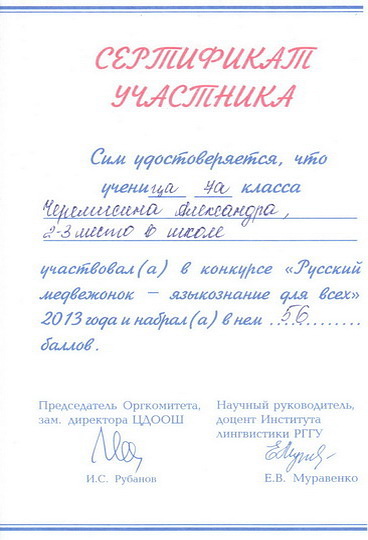 СЕРТИФИКАТ
УЧАСТНИКА
Сим удостоверяется, что
ученица 4а класса
Черемисина Александра,
2-3 место в школе
участвовал(а) в конкурсе «Русский
медвежонок – языкознание для всех»
2013 года и набрал(а) в нем ..56..........
баллов.
Председатель Оргкомитета,
зам. директора ЦДООШ
И.С. Рубанов
Научный руководитель,
доцент Института
лингвистики РГГУ
Е.В. Муравенко